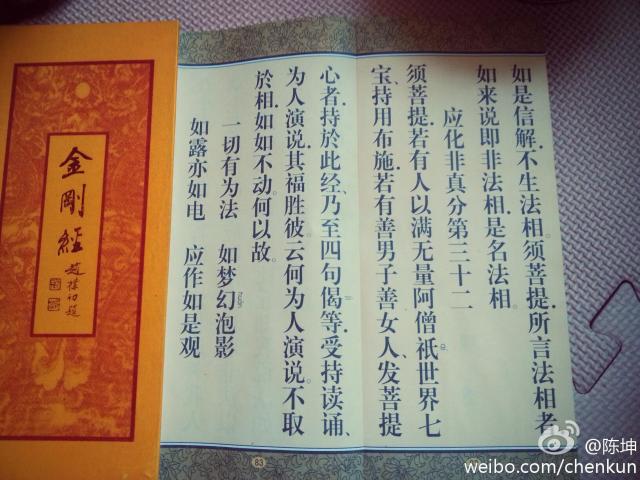 金剛經
趙樸初題
如是信解、不生法相。须菩提、所言法相者、
如来说即非法相、是名法相。
应化非真分第三十二
须菩提、若有人以满无量阿僧祇世界七
宝、持用布施、若有善男子善女人、发菩提
心者、持於此经、乃至四句偈等、受持读诵、
为人演说、其福胜彼。云何为人演说。不取
於相、如如不动。何以故。
一切有为法　如梦幻泡影
如露亦如电　应作如是观
83
@陈坤
weibo.com/chenkun